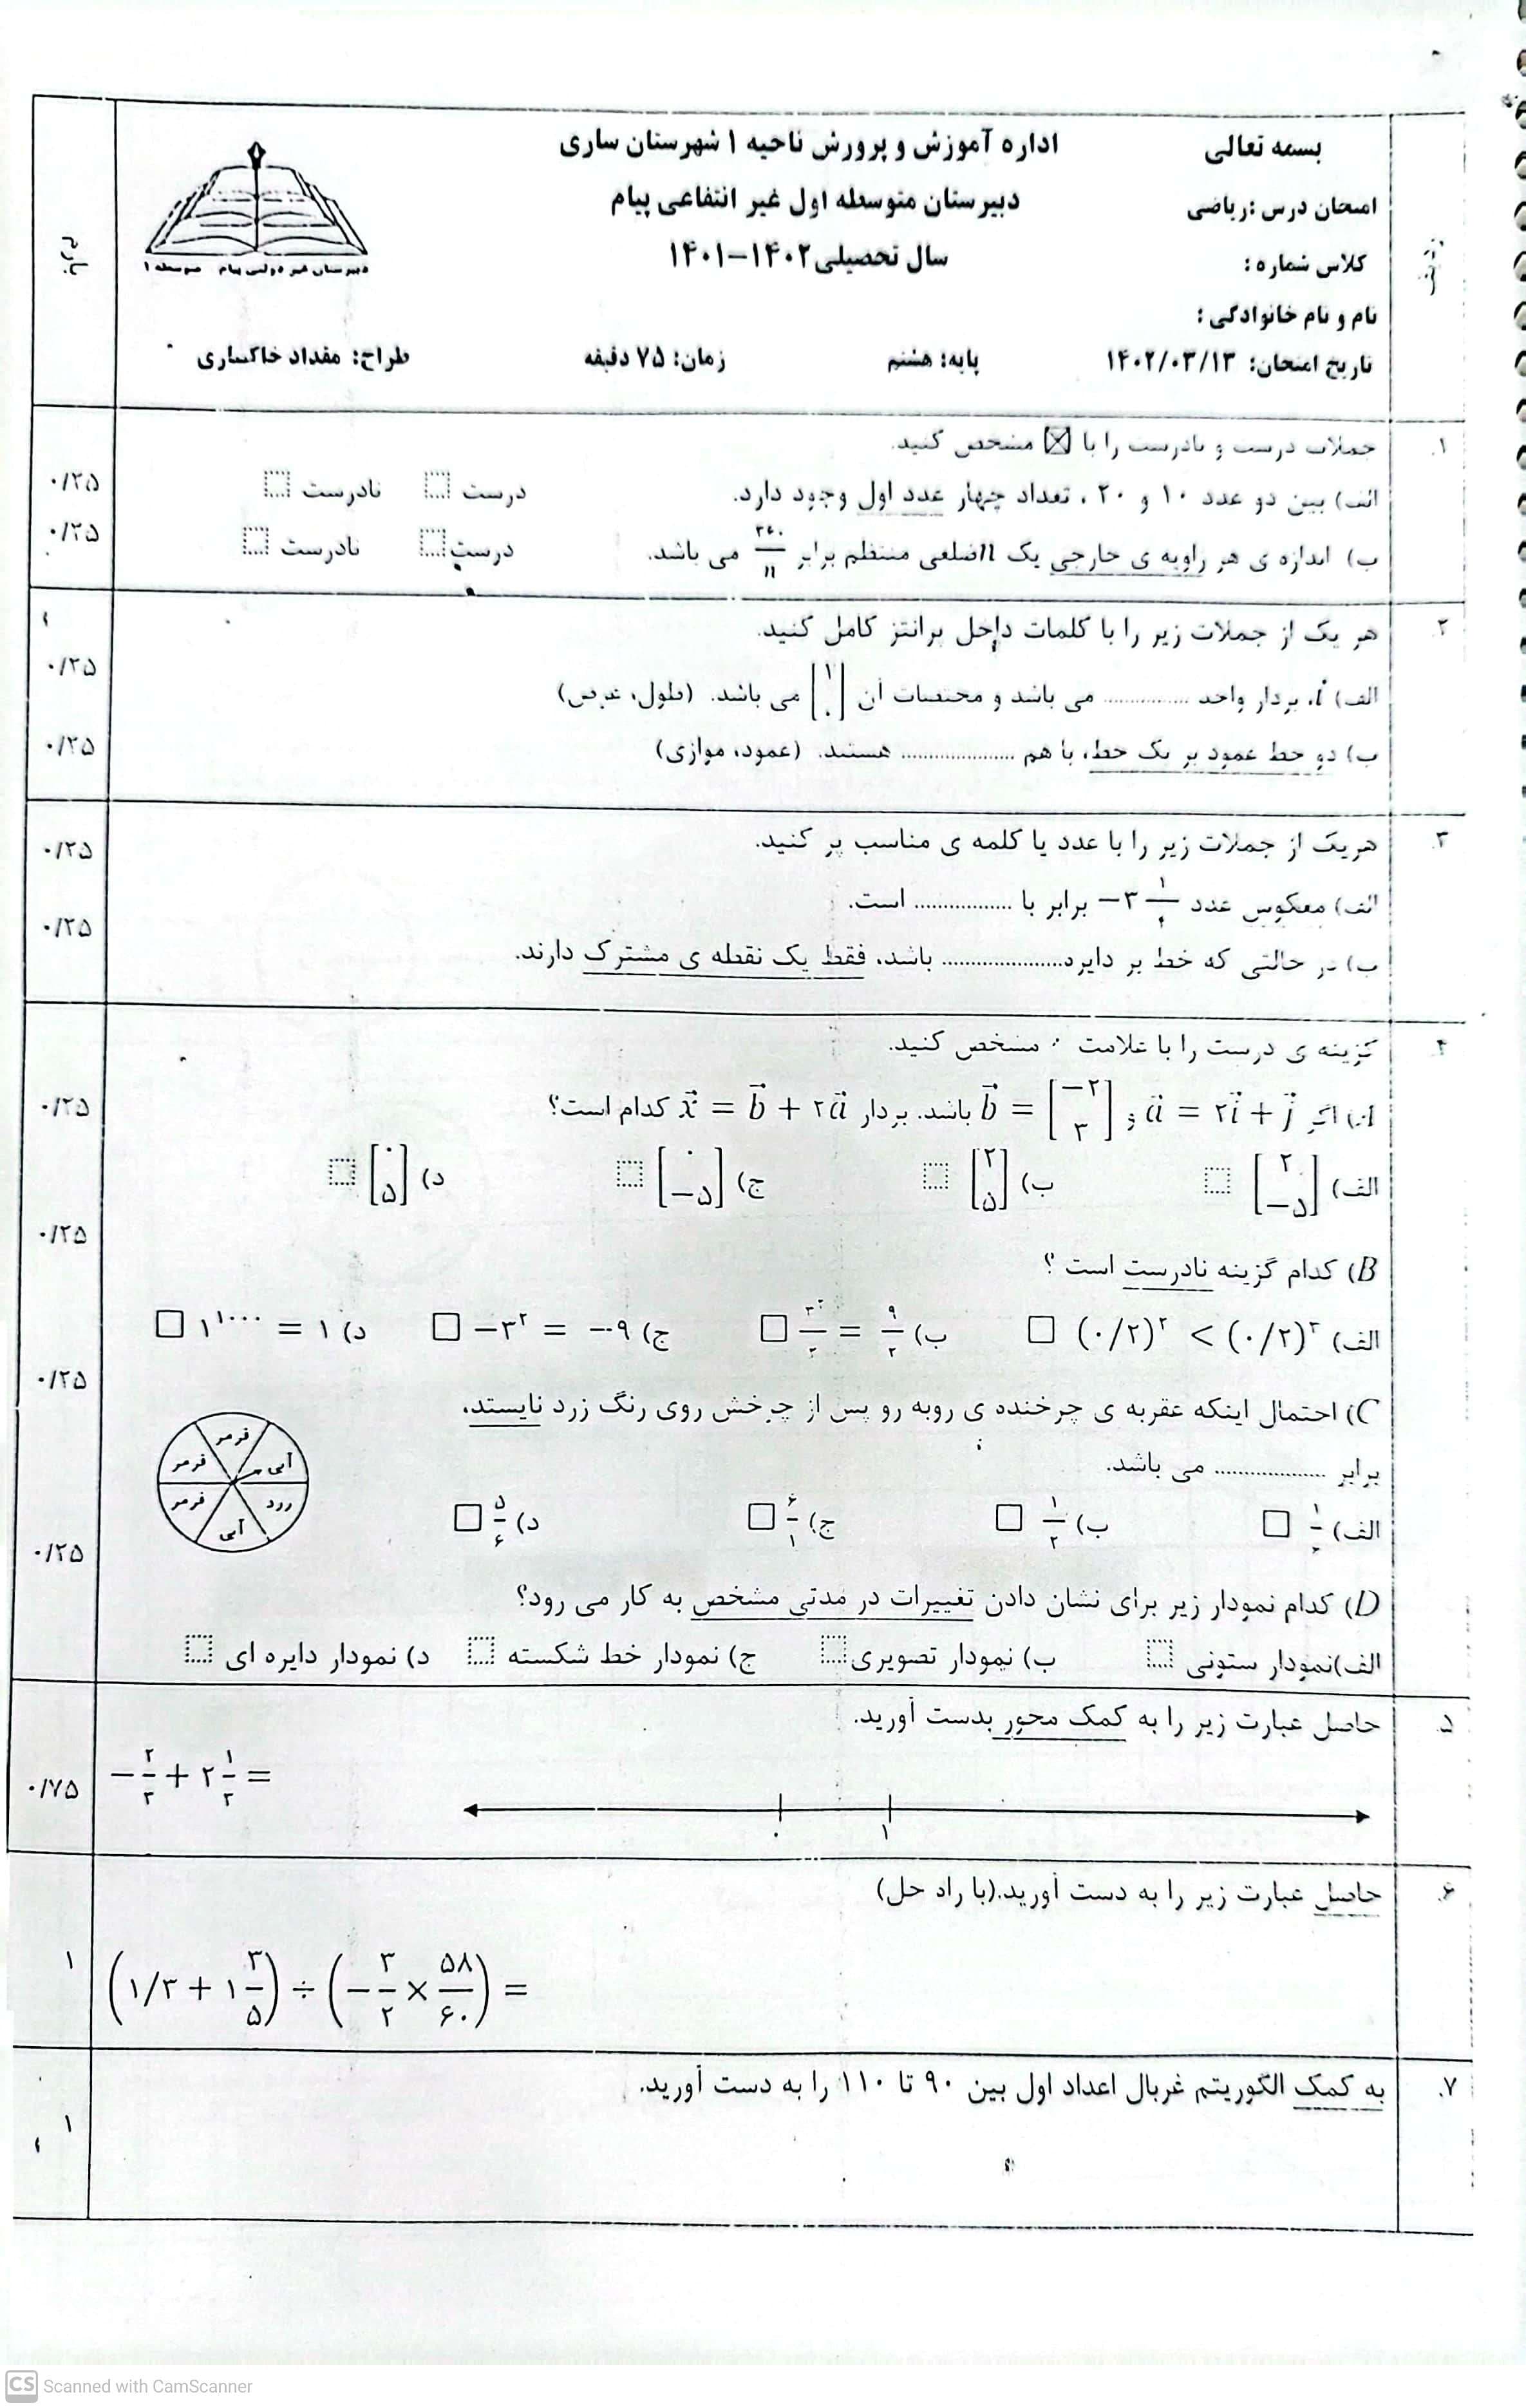 بسمه تعالی
اداره آموزش و پرورش ناحیه ۱ شهرستان ساری
امتحان درس :ریاضی
دبیرستان متوسطه اول غیر انتفاعی پیام
کلاس شماره :
سال تحصیلی ۱۴۰۲-۱۴۰۱
نام و نام خانوادگی :
تاریخ امتحان: ۱۴۰۲/۰۳/۱۳ پایه: هشتم زمان: ۷۵ دقیقه طراح: مقداد خاکساری
دبیرستان غیر دولتی پیام متوسطه ۱
ردیف
بارم
۱. جملات درست و نادرست را با ☒ مشخص کنید.
الف) بین دو عدد ۱۰ و ۲۰ ، تعداد چهار عدد اول وجود دارد. درست نادرست ۰/۲۵
ب) اندازه ی هر زاویه ی خارجی یک n ضلعی منتظم برابر ۳۶۰/n می باشد. درست نادرست ۰/۲۵
۲. هر یک از جملات زیر را با کلمات داخل برانتز کامل کنید.
الف) i، بردار واحد ............... می باشد و مختصات آن [۱ ۰] می باشد. (طول، عرض) ۰/۲۵
ب) دو خط عمود بر یک خط، با هم .................... هستند. (عمود، موازی) ۰/۲۵
۳. هریک از جملات زیر را با عدد یا کلمه ی مناسب پر کنید. ۰/۲۵
الف) معکوس عدد برابر با ................. است. ۰/۲۵
ب) در حالتی که خط بر دایره..................... باشد، فقط یک نقطه ی مشترک دارند.
۴. گزینه ی درست را با علامت مشخص کنید.
A) اگر a = ۲i + j و b = [−۲ ۳] باشد. بردار x = b + ۲a کدام است؟ ۰/۲۵
الف) [۲ −۵] ب) [۲ ۵] ج) [۰ −۵] د) [۰ ۵]
B) کدام گزینه نادرست است ؟ ۰/۲۵
الف) (۰/۲)^۲ < (۰/۲)^۳ ب) ۳^۲/۲ = ۹/۲ ج) −۳^۲ = −۹ د) ۱^۱۰۰۰ = ۱
C) احتمال اینکه عقربه ی چرخنده ی روبه رو پس از چرخش روی رنگ زرد نایستد، ۰/۲۵
برابر .................. می باشد.
الف) ب) ۱/۲ ج) ۶/۱ د) ۵/۶
قرمز
آبی
قرمز
زرد
قرمز
آبی
D) کدام نمودار زیر برای نشان دادن تغییرات در مدتی مشخص به کار می رود؟ ۰/۲۵
الف)نمودار ستونی ب) نمودار تصویری ج) نمودار خط شکسته د) نمودار دایره ای
۵. حاصل عبارت زیر را به کمک محور بدست آورید.
= ۲ ۱/۲ + ۰/۷۵
۰ ۱
۶. حاصل عبارت زیر را به دست آورید.(با راه حل)
(۱/۳ + ۱ ۳/۵) ÷ (−۳/۲ × ۵۸/۶۰) = ۱
۷. به کمک الگوریتم غربال اعداد اول بین ۹۰ تا ۱۱۰ را به دست آورید. ۱
CS Scanned with CamScanner